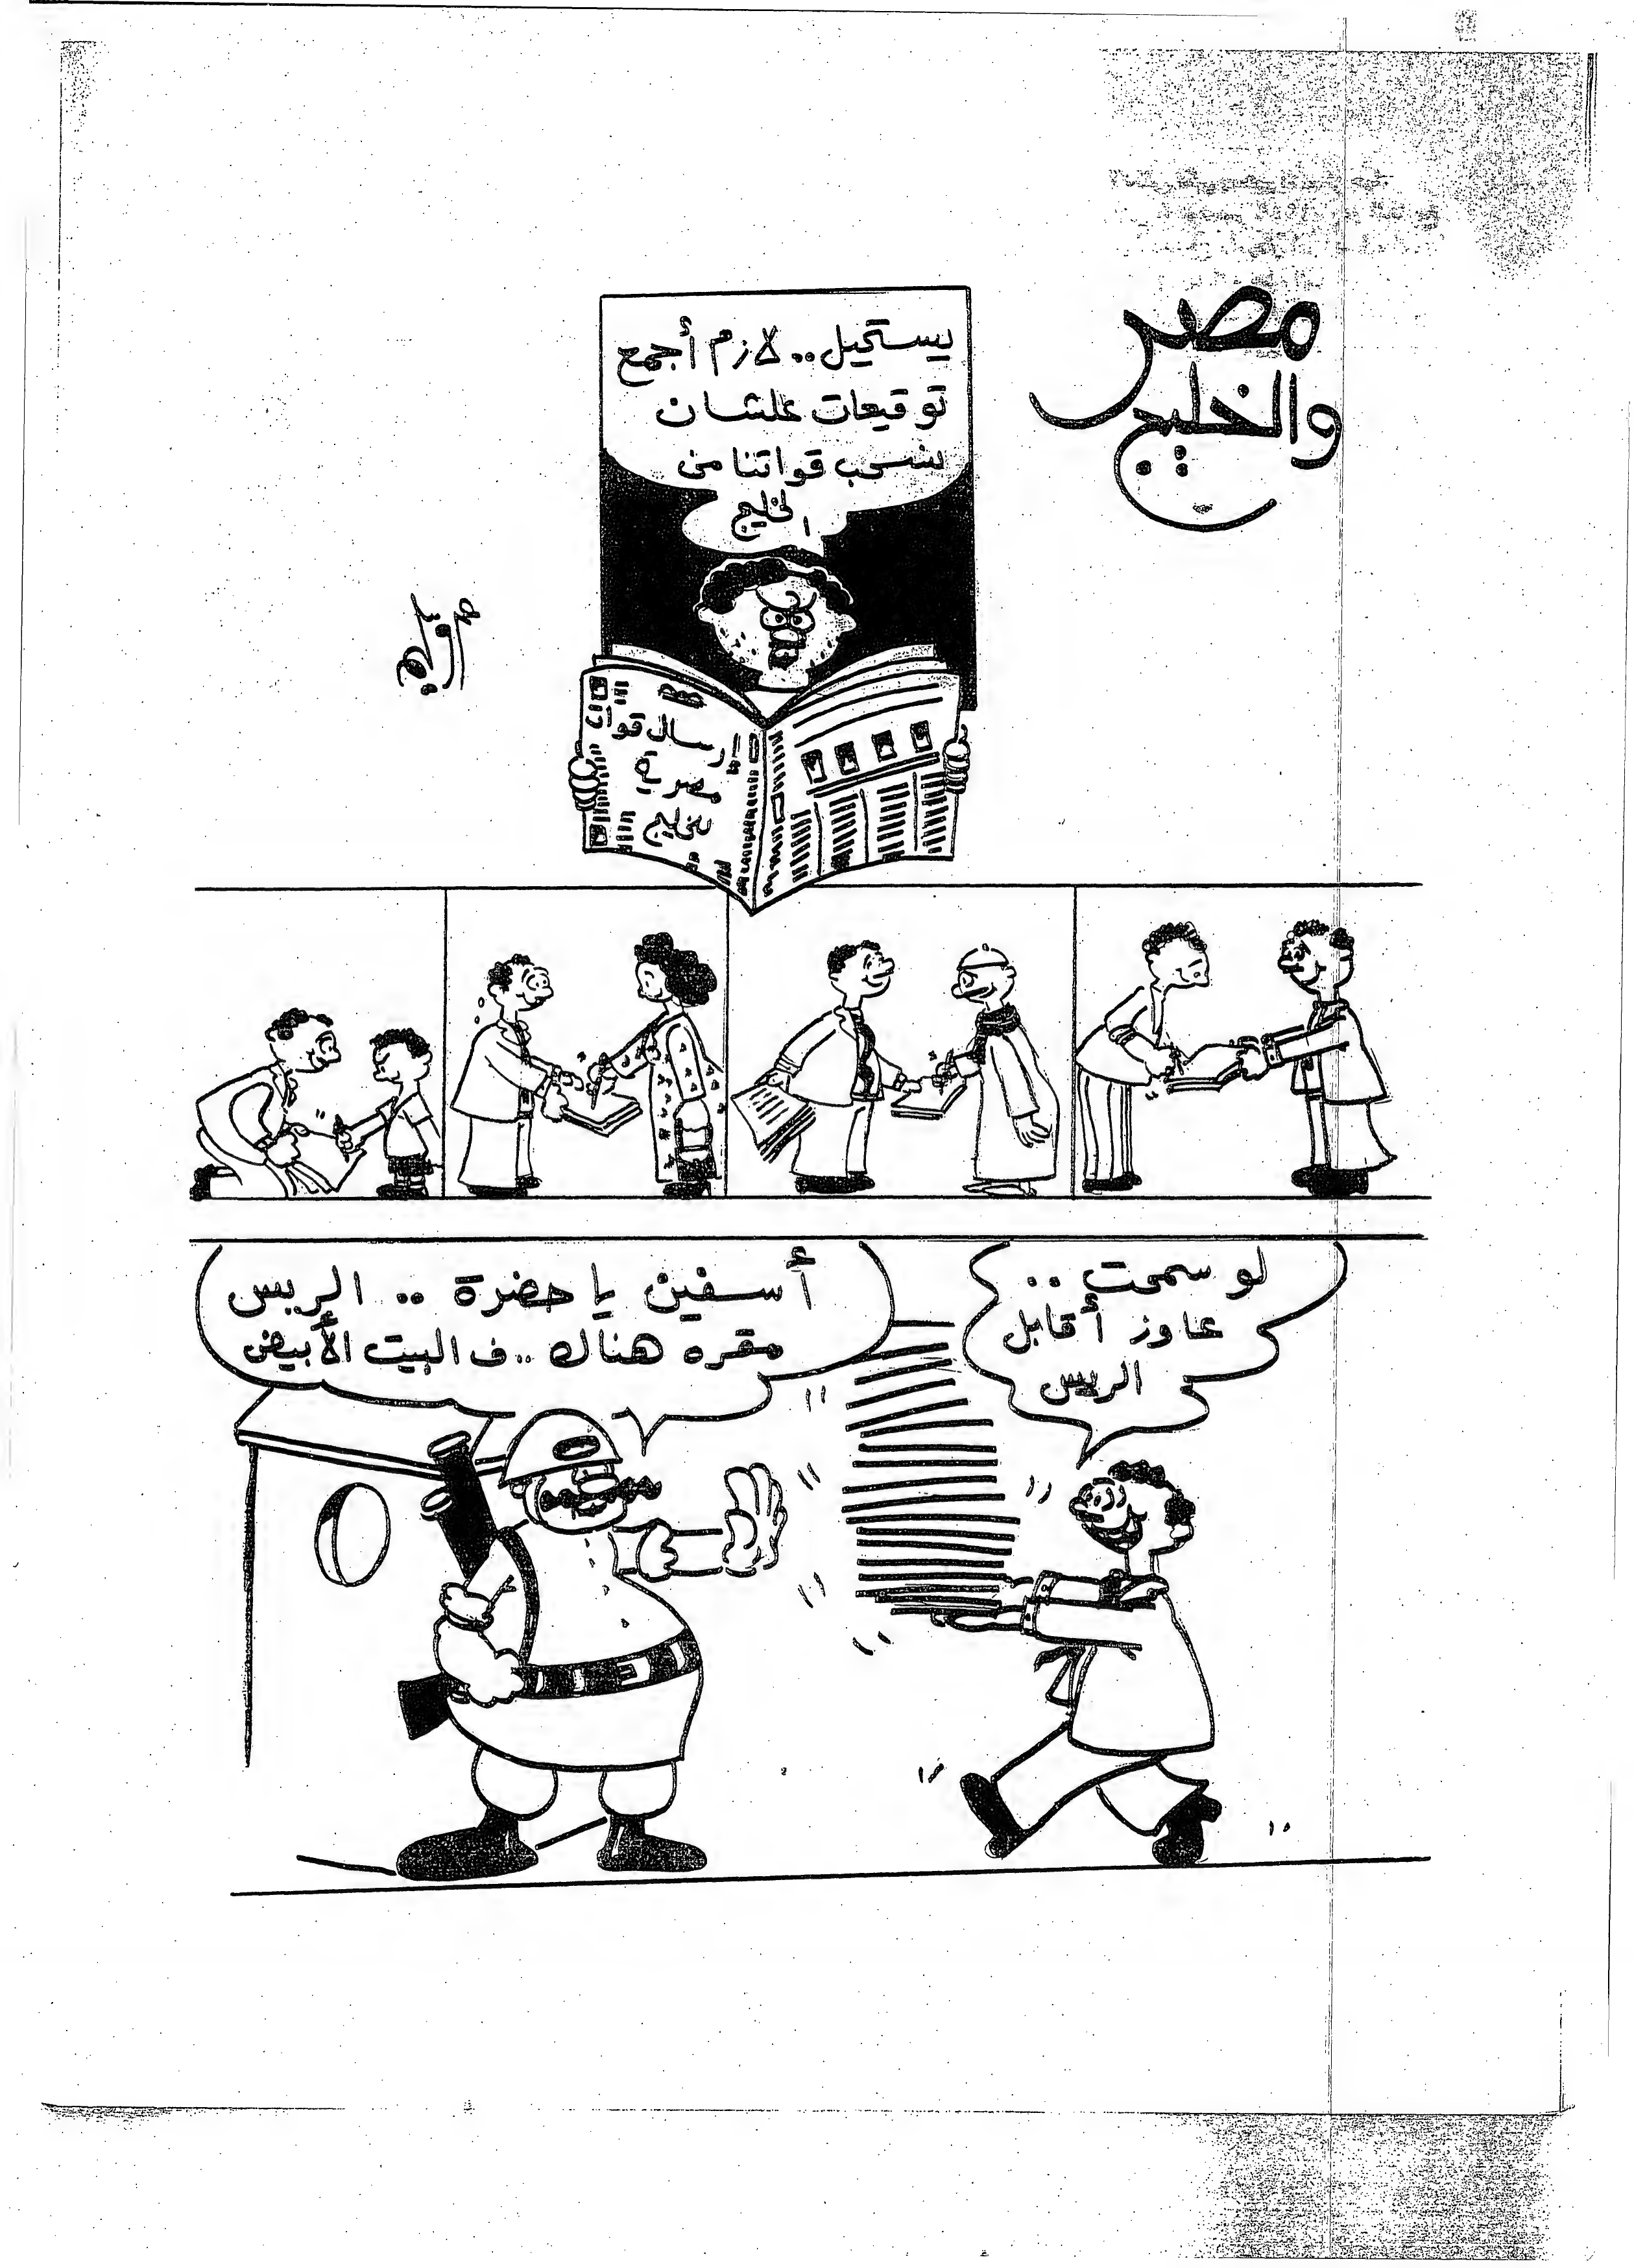 مصر
والخليج
يستحيل.. لازم أجمع
توقيعات علشان
نسحب قواتنا من
الخليج
إرسال قوات
مصرية
للخليج
لو سمحت ..
عاوز أقابل
الريس
أسفين يا حضرة .. الريس
مقره هناك .. ف البيت الأبيض